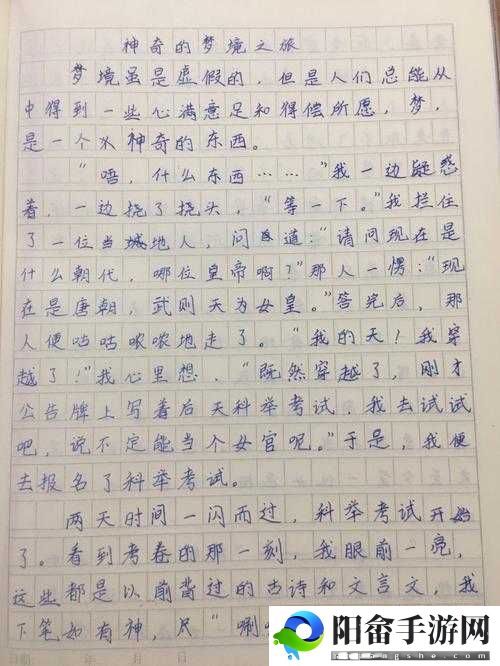 神奇的梦境之旅
梦境虽是虚假的，但是人们总能从
中得到一些心满意足和得偿所愿，梦，
是一个火神奇的东西。
“唔，什么东西……”我一边疑惑
着，一边挠了挠头，“等一下。”我拦住
了一位当地人，问道：“请问现在是
什么朝代，哪位皇帝啊？”那人一愣：“现
在是唐朝，武则天为女皇。”答完后，那
人便咕咕哝哝地走了。“我的天！我穿
越了！”我心里想，“既然穿越了，刚才
公告牌上写着后天科举考试，我去试试
吧，说不定能当个女官呢。”于是，我便
去报名了科举考试。
两天时间一闪而过，科举考试开始
了。看到考卷的那一刻，我眼前一亮，
这些都是以前背过的古诗和文言文，我
下笔如有神，只“唰
年 月 日
阳畲手游网